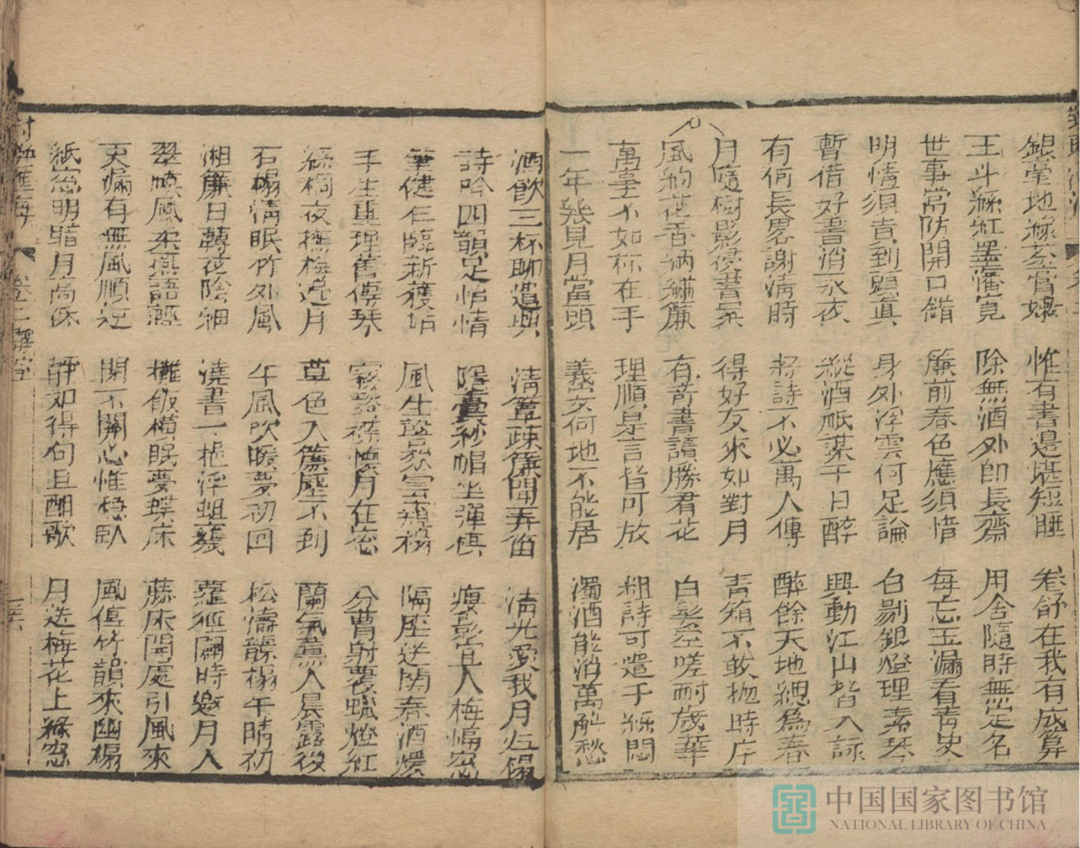 銀堂地 惟有書邊延短睡 卷舒在我有成算
王斗 紅墨瀋寬 除無酒外即長齋 用舍隨時無定名
世事常防開口錯 簾前春色應須惜 每忘玉漏看青史
明情須責到頭真 身外浮雲何足論 白剔銀燈理素琴
暫借好書消永夜 縱酒祇謀千日醉 興動江山皆入詠
有何長畧謝清時 將詩不必萬人傳 醉餘天地總為春
月隨樹影侵書案 得好友來如對月 青箱不敢拋時序
風約花香納繡簾 有奇書讀勝看花 白髮空嗟耐歲華
萬事不如杯在手 理順是言皆可放 糊詩可遣千絲悶
一年幾見月當頭 義安何地不能居 濁酒能消萬斛愁
酒飲三杯聊遣興 清簟疎簾閒弄笛 清光愛我月 榻
詩吟四韻足怡情 隱囊紗帽坐彈棋 瘦影宜人梅 窓
筆健乍臨新獲帖 風生 雲 隔座送鬮春酒煖
手生重理舊傳琴 襟懷月在 分曹射覆蠟燈紅
綠桐夜撫梅邊月 草色入簾塵不到 蘭氣薰人晨露後
石榻清眠竹外風 午風吹暖夢初回 松濤 榻午晴初
湘簾日轉花陰細 澆書一榼浮蛆甕 蘿徑開時邀月入
翠幙風柔燕語輕 攤飯橫眠夢蝶床 藤床閒處引風來
更漏有無風順逆 閒不關心惟穩臥 風 竹韻來幽榻
紙窓明暗月高低 靜如得句且酣歌 月送梅花上綠窓
卷二
中国国家图书馆
NATIONAL LIBRARY OF CHINA